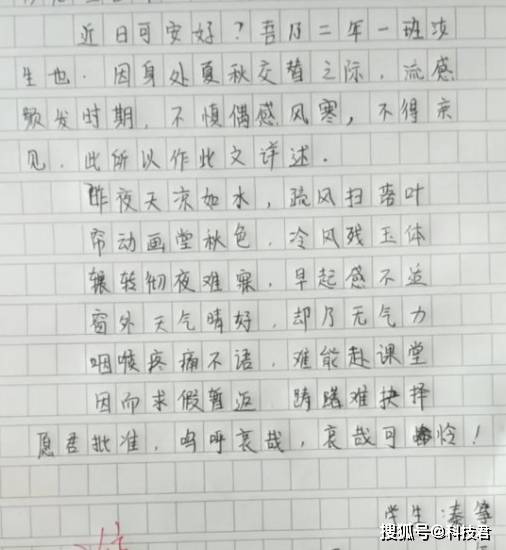 近日可安好？吾乃二年一班学
生也．因身处夏秋交替之际，流感
频发时期，不慎偶感风寒，不得亲
见．此所以作此文详述．
昨夜天凉如水，疏风扫落叶
帘动画堂秋色．冷风残玉体
辗转彻夜难寐，早起感不适
窗外天气晴好，却乃无气力
咽喉疼痛不语，难能赴课堂
因而求假暂返 踌躇难抉择
愿君批准，呜呼哀哉，哀哉可怜！
学生：秦
搜狐号@科技君